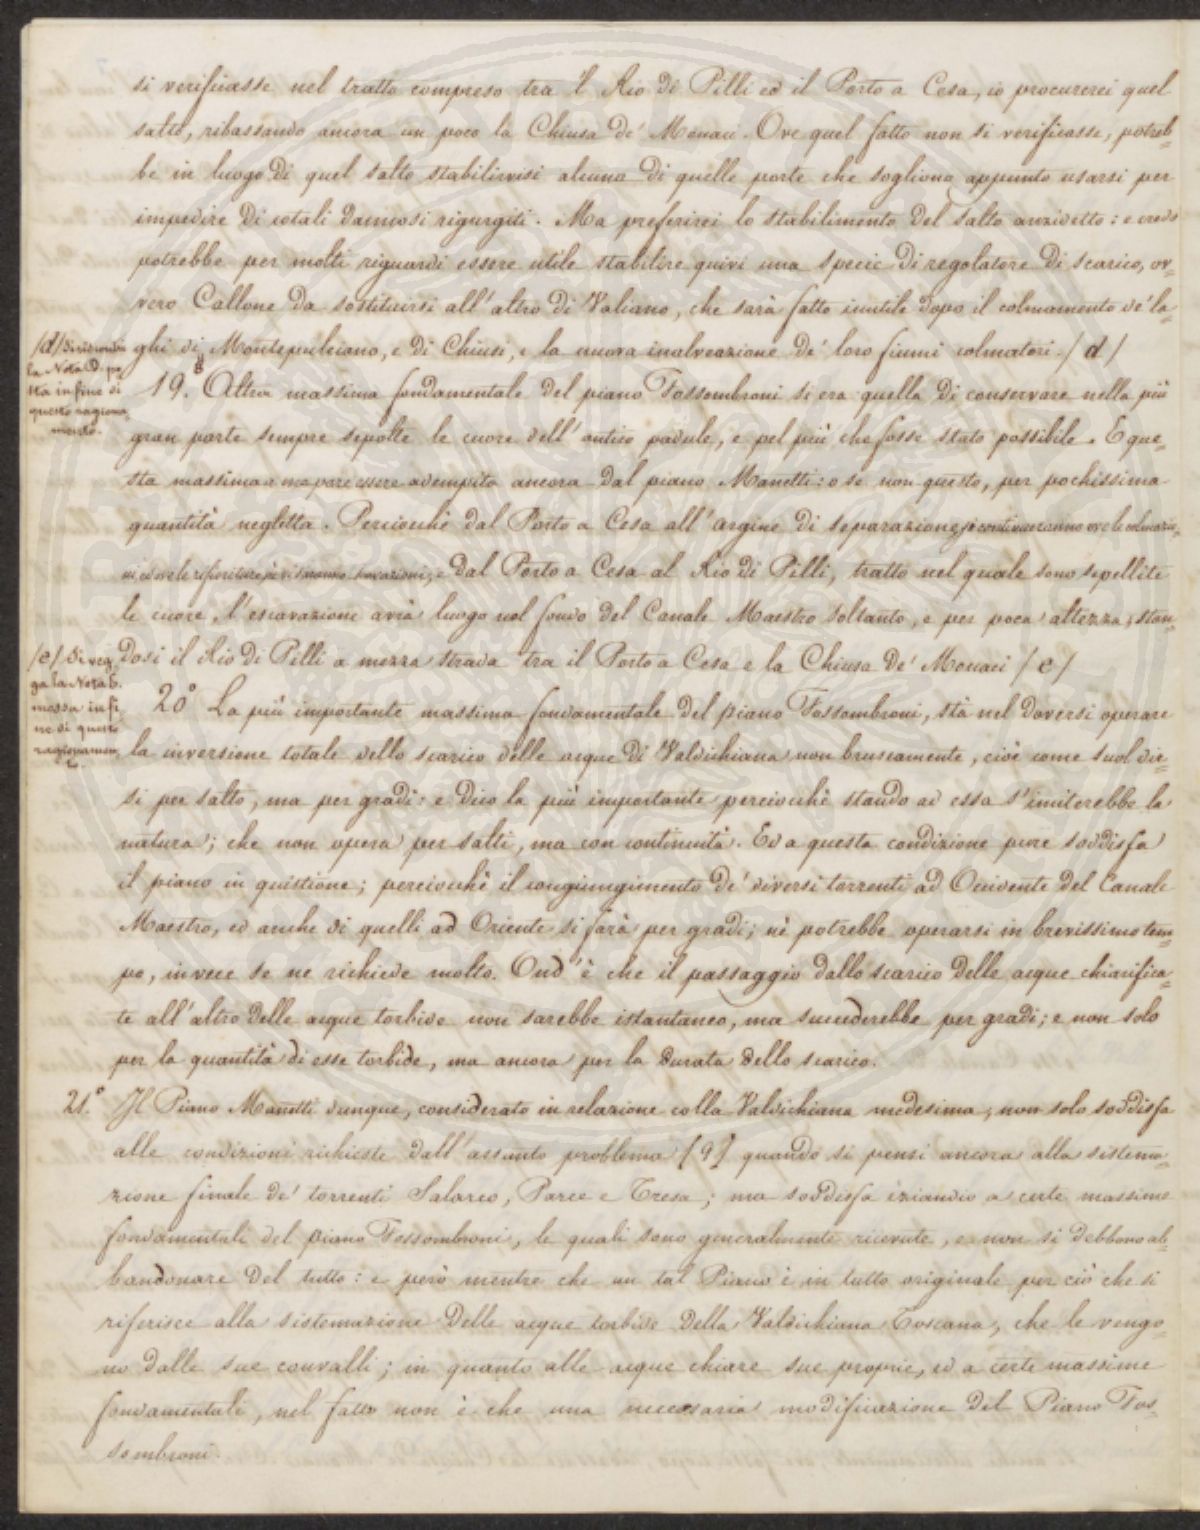 si verificasse nel tratto compreso tra il Rio di Pilli ed il Porto a Cesa, io procurerei quel
salto, ribassando ancora un poco la Chiusa de' Monaci. Ove quel fatto non si verificasse, potreb=
be in luogo di quel salto stabilirvisi alcuna di quelle porte che sogliono appunto usarsi per
impedire di cotali dannosi rigurgiti. Ma preferirei lo stabilimento del salto anzidetto: e credo
potrebbe per molti riguardi essere utile stabilire quivi una specie di regolatore di scarico, ov=
vero Callone da sostituirsi all'altro di Valiano, che sarà fatto inutile dopo il colmamento de' la=
ghi di Montepulciano, e di Chiusi, e la nuova inalveazione de' loro fiumi colmatori. /d/
/d/ Si riscontri
la Nota D. po
sta in fine di
questo ragiona
mento.
19.° Altra massima fondamentale del piano Fossombroni si era quella di conservare nella più
gran parte sempre sepolte le cuore dell'antico padule, e pel più che fosse stato possibile. E que=
sta massima a me pare essere adempita ancora dal piano Manetti: o se non questo, per pochissima
quantità negletta. Perciocchè dal Porto a Cesa all'argine di separazione, si continueranno ove le colmazio=
ni, ed ove le rifioriture, nè vi saranno scavazioni; e dal Porto a Cesa al Rio di Pilli, tratto nel quale sono sepellite
le cuore, l'escavazione avrà luogo nel fondo del Canale Maestro soltanto, e per poca altezza, stan=
dosi il Rio di Pilli a mezza strada tra il Porto a Cesa e la Chiusa de' Monaci /e/
/e/ Si veg
ga la Nota E.
messa in fi
ne di questo
ragionamen
to.
20° La più importante massima fondamentale del piano Fossombroni, stà nel doversi operare
la inversione totale dello scarico delle acque di Valdichiana non bruscamente, cioè come suol dir=
si per salto, ma per gradi: e dico la più importante perciocchè stando ad essa s'imiterebbe la
natura; che non opera per salti, ma con continuità. Ed a questa condizione pure soddisfa
il piano in quistione; perciocchè il congiungimento de' diversi torrenti ad Occidente del Canale
Maestro, ed anche di quelli ad Oriente si farà per gradi; nè potrebbe operarsi in brevissimo tem=
po, invece se ne richiede molto. Ond'è che il passaggio dallo scarico delle acque chiarifica=
te all'altro delle acque torbide non sarebbe istantaneo, ma succederebbe per gradi; e non solo
per la quantità di esse torbide, ma ancora per la durata dello scarico.
21.° Il Piano Manetti dunque, considerato in relazione colla Valdichiana medesima, non solo soddisfa
alle condizioni richieste dall'assunto problema [9] quando si pensi ancora alla sistema=
zione finale de' torrenti Salarco, Parce e Tresa; ma soddisfa eziandio a certe massime
fondamentali del piano Fossombroni, le quali sono generalmente ricevute, e non si debbono ab=
bandonare del tutto: e però mentre che un tal Piano è in tutto originale per ciò che si
riferisce alla sistemazione delle acque torbide della Valdichiana Toscana, che le vengo=
no dalle sue convalli; in quanto alle acque chiare sue proprie, ed a certe massime
fondamentali, nel fatto non è che una necessaria modificazione del Piano Fos=
sombroni.